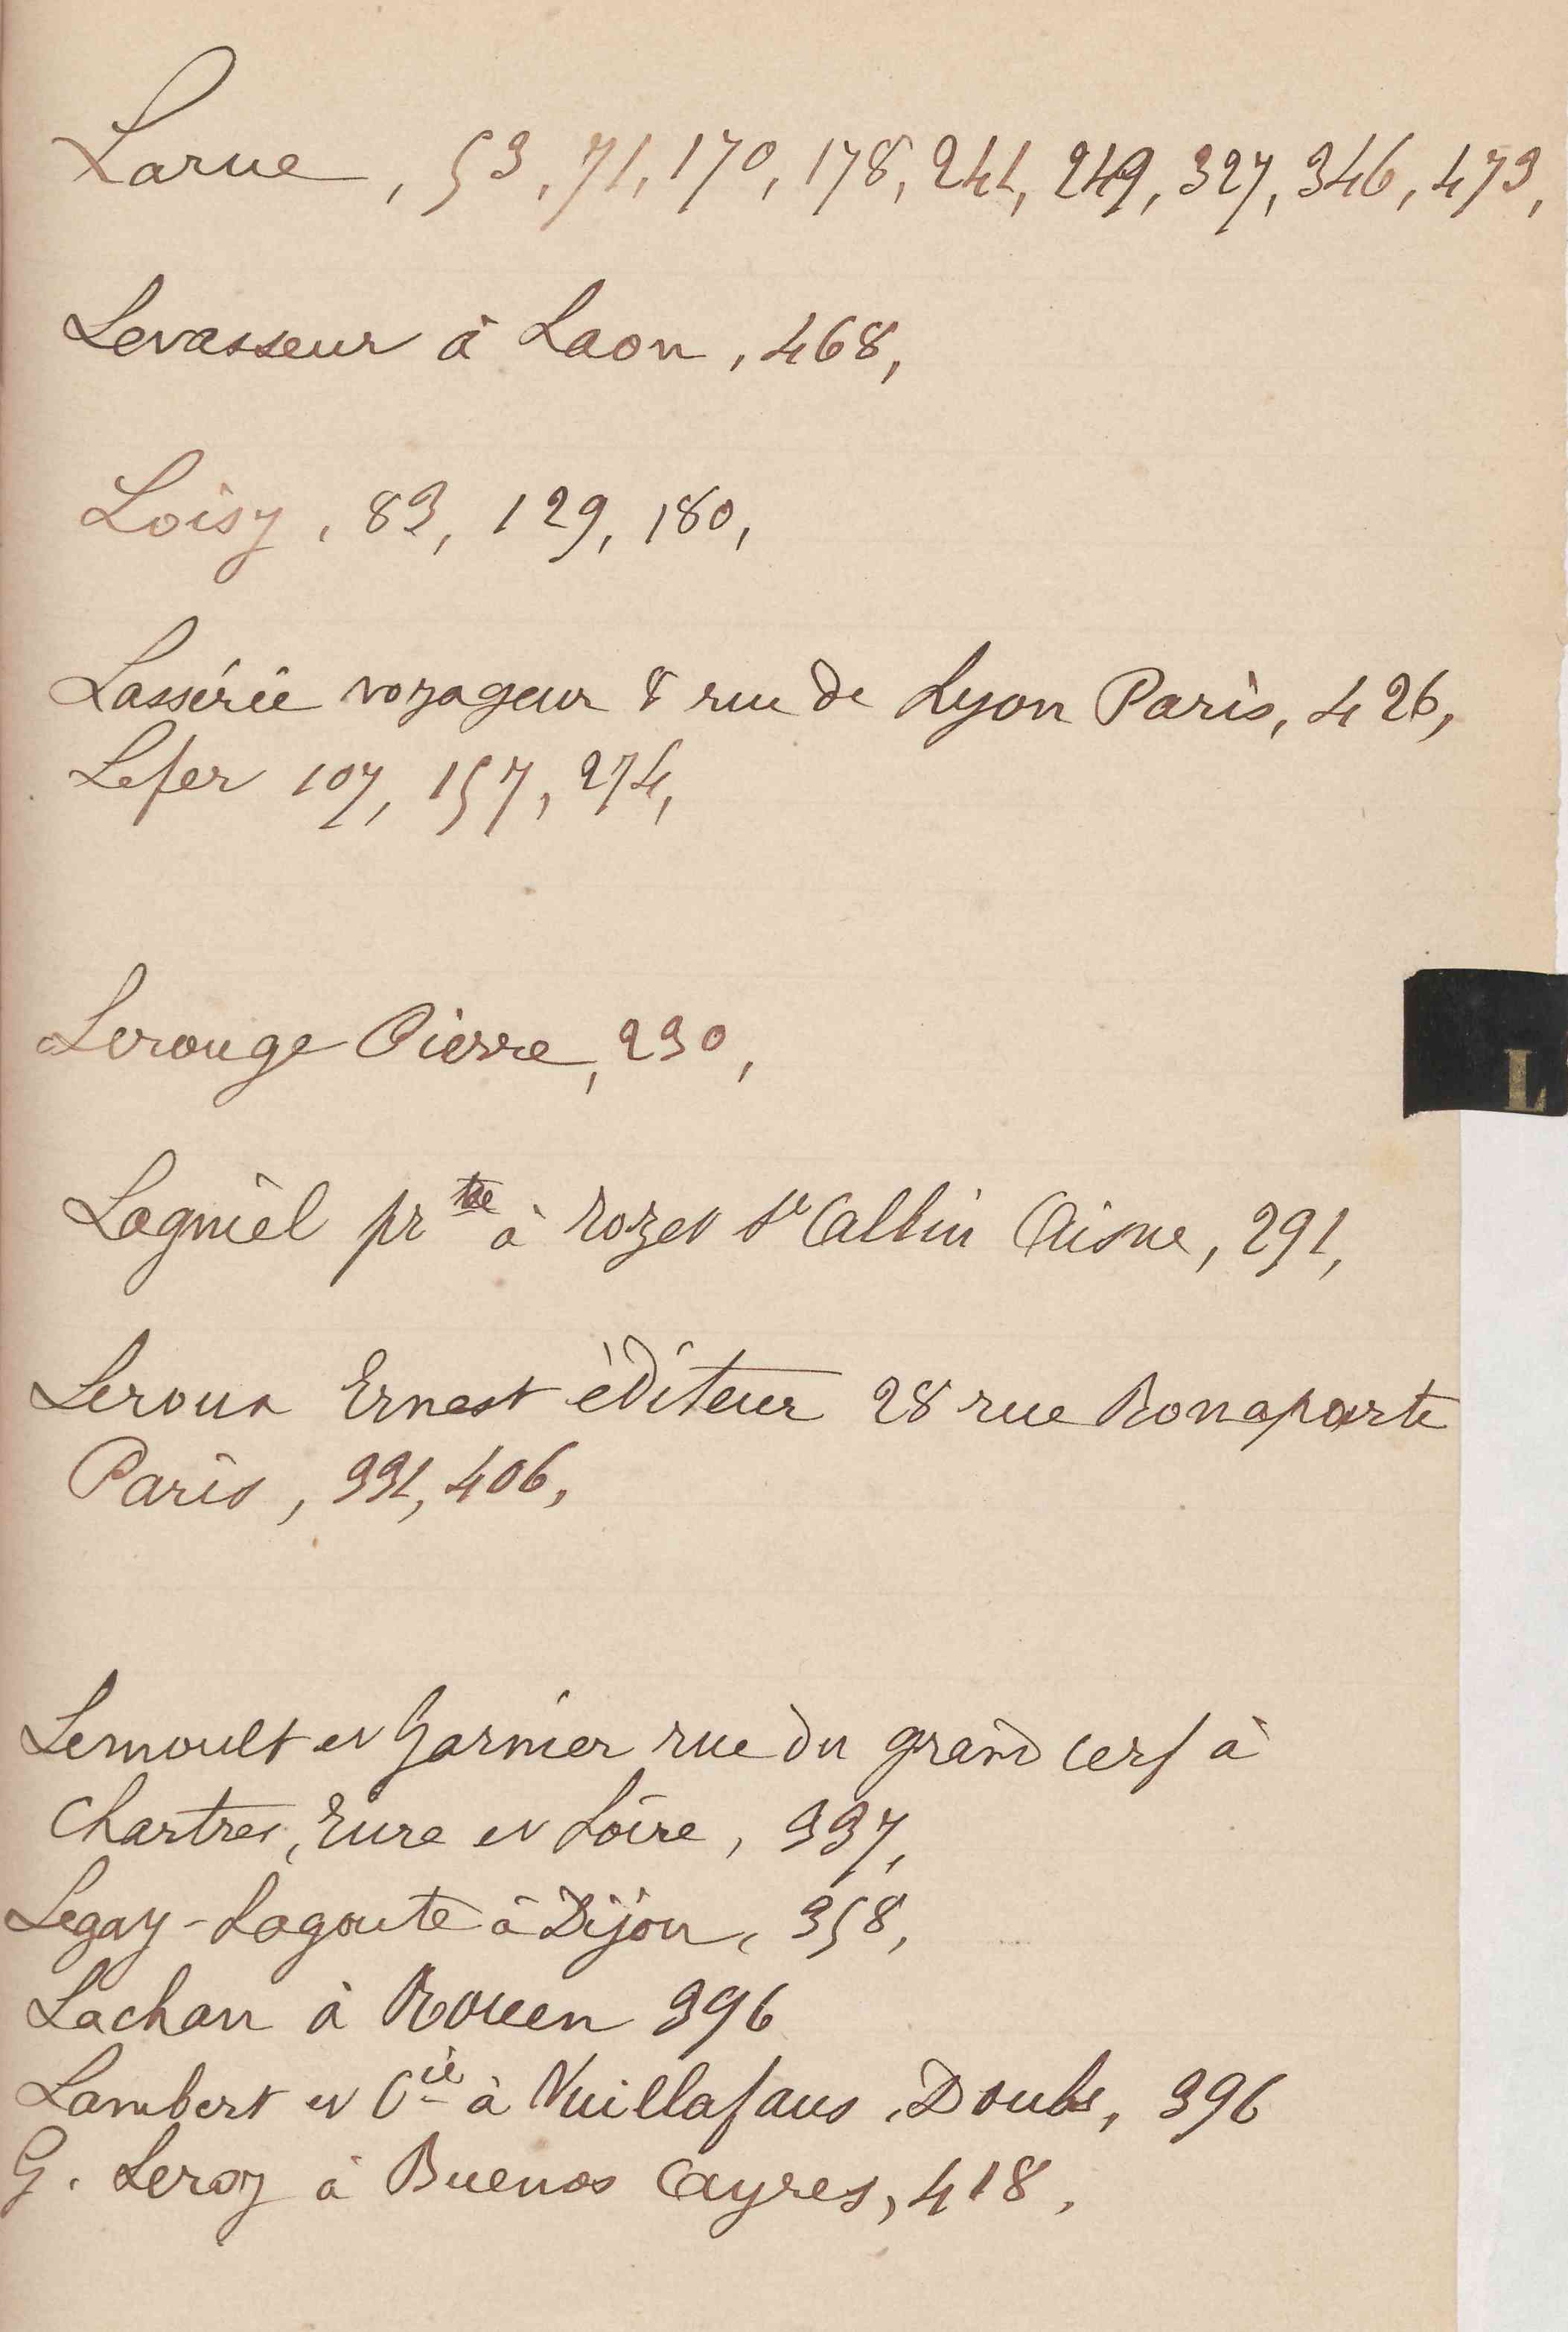 Larue, 53, 71, 170, 178, 241, 249, 327, 346, 473,
Levasseur à Laon, 468,
Loisy, 83, 129, 180,
Lassérie voyageur 8 rue de Lyon Paris, 426,
Lefer 107, 157, 274,
Lerouge Pierre, 230,
L
Lagniel pr à rozet St Albin Aisne, 291,
Leroux Ernest éditeur 28 rue Bonaparte
Paris, 331, 406,
Lemoult et Garnier rue du grand cerf à
Chartres, Eure et Loire, 337,
Legay-Lagoute à Dijon, 358,
Lachan à Rouen 396
Lambert et Cie à Vuillafans, Doubs, 396
G. Leroy à Buenos Ayres, 418,